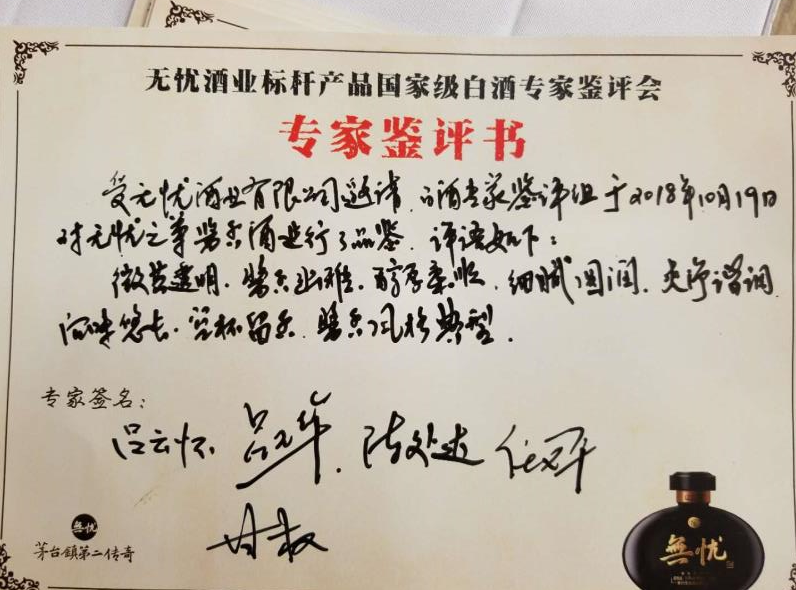 无忧酒业标杆产品国家级白酒专家鉴评会
专家鉴评书
受无忧酒业有限公司邀请,白酒专家鉴评组于2018年10月19日
对无忧之尊酱香酒进行了品鉴,评语如下:
微黄透明、酱香幽雅、醇厚柔顺、细腻圆润、爽净谐调
回味悠长、空杯留香、酱香风格典型。
专家签名:
吕云怀
無忧
茅台鎮第二传奇
無忧